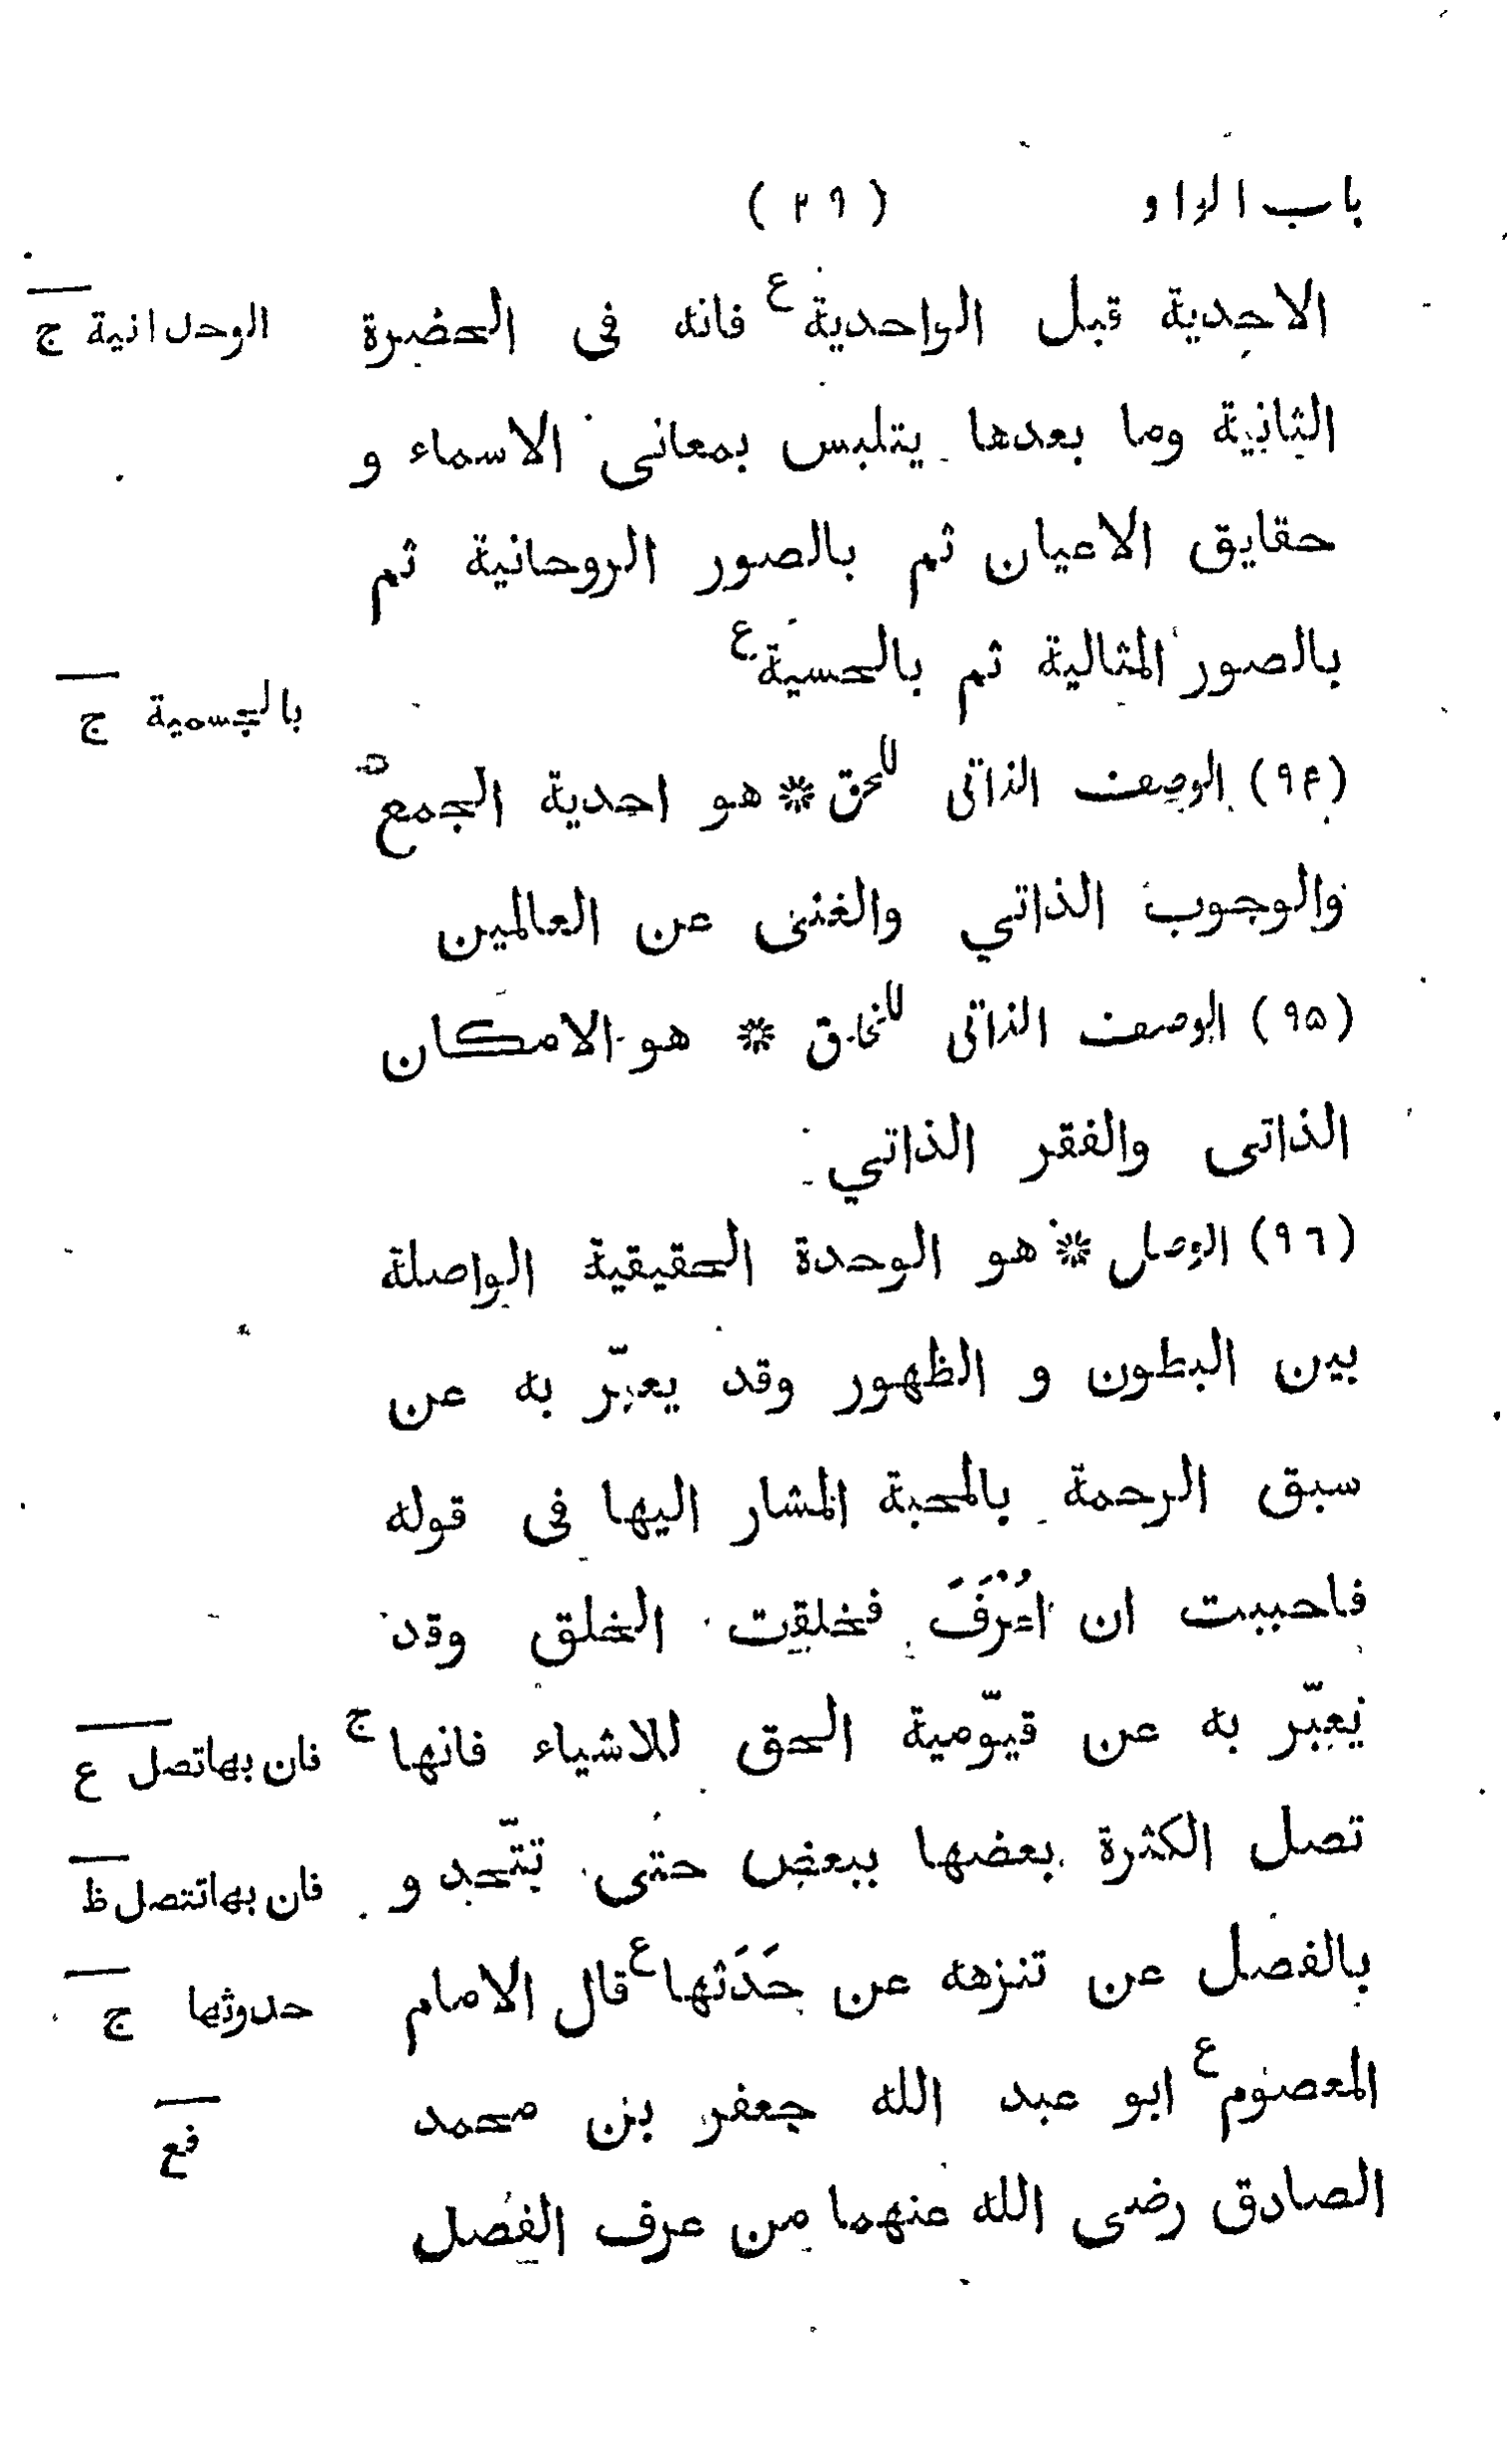 باب الواو (٢٩)
الاحدية قبل الواحدية ع فانه فى الحضرة
الوحدانية ج
الثانية وما بعدها يتلبس بمعانى الاسماء و
حقايق الاعيان ثم بالصور الروحانية ثم
بالصور المثالية ثم بالحسية ع
بالجسمية ج
(٩۴) الوصف الذاتى للحق * هو احدية الجمع
والوجوب الذاتي والغنى عن العالمين
(٩۵) الوصف الذاتى للخلق * هو الامكان
الذاتى والفقر الذاتي
(٩٦) الوصل * هو الوحدة الحقيقية الواصلة
بين البطون و الظهور وقد يعبّر به عن
سبق الرحمة بالمحبة المشار اليها فى قوله
فاحببت ان اُعْرَفَ فخلقت الخلق وقد
يعبّر به عن قيّومية الحق للاشياء فانها ج
فان بهاتصل ع
تصل الكثرة بعضها ببعض حتى تتّحد و
فان بهاتتصل ظ
بالفصل عن تنزهه عن حَدَثها ع قال الامام
حدوثها ج
المعصوم ع ابو عبد الله جعفر بن محمد
فع
الصادق رضى الله عنهما من عرف الفصل